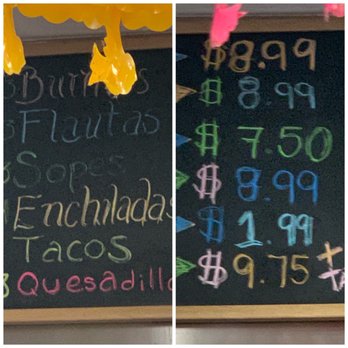 Burritos
Flautas
Sopes
Enchiladas
Tacos
Quesadilla
$8.99
$8.99
$7.50
$8.99
$1.99
$9.75 +